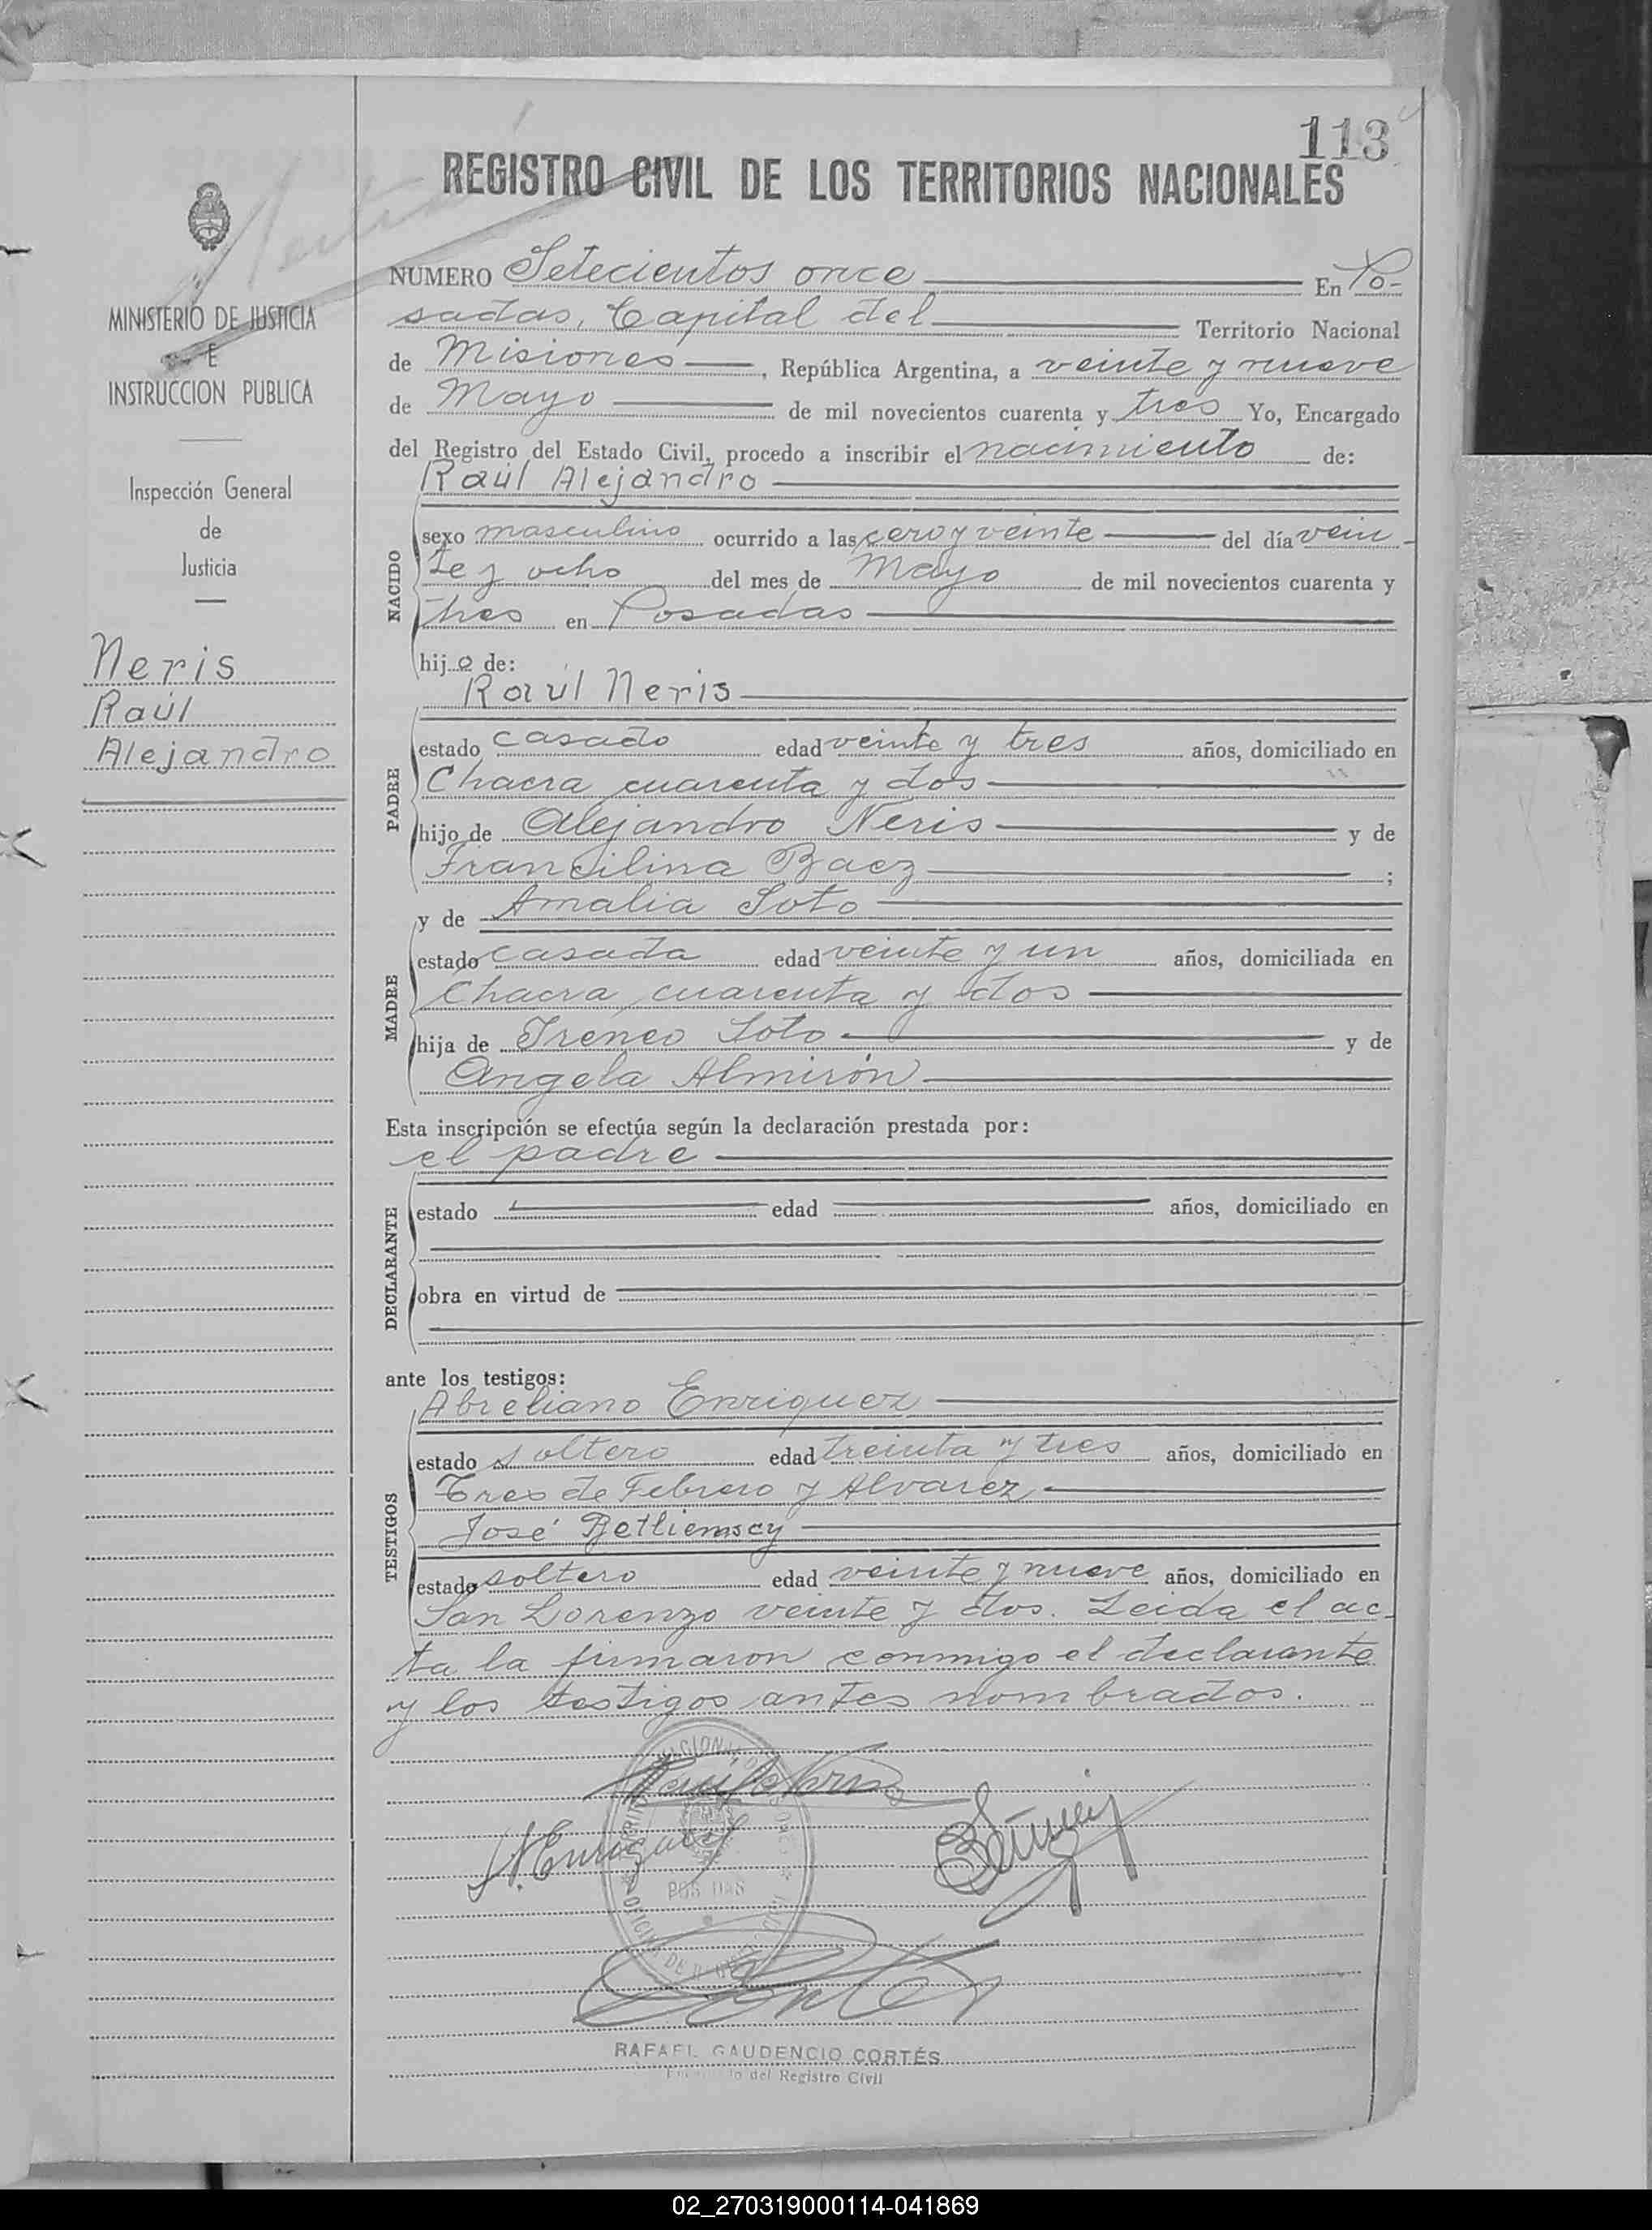 113
REGISTRO CIVIL DE LOS TERRITORIOS NACIONALES
MINISTERIO DE JUSTICIA
E
INSTRUCCION PUBLICA
Inspección General
de
Justicia
Neris
Raúl
Alejandro
NUMERO Setecientos once En Po-
sadas, Capital del Territorio Nacional
de Misiones, República Argentina, a veinte y nueve
de Mayo de mil novecientos cuarenta y tres Yo, Encargado
del Registro del Estado Civil, procedo a inscribir el nacimiento de:
Raúl Alejandro
NACIDO
sexo masculino ocurrido a las cero y veinte del día vein-
te y ocho del mes de Mayo de mil novecientos cuarenta y
tres en Posadas
hijo de:
Raúl Neris
PADRE
estado casado edad veinte y tres años, domiciliado en
Chacra cuarenta y dos
hijo de Alejandro Neris y de
Francilina Baez;
y de Amalia Soto
MADRE
estado casada edad veinte y un años, domiciliada en
Chacra cuarenta y dos
hija de Ireneo Soto y de
Angela Almirón
Esta inscripción se efectúa según la declaración prestada por:
el padre
DECLARANTE
estado edad años, domiciliado en
obra en virtud de
ante los testigos:
Abreliano Enriquez
TESTIGOS
estado soltero edad treinta y tres años, domiciliado en
Tres de Febrero y Alvarez
José Betliemscy
estado soltero edad veinte y nueve años, domiciliado en
San Lorenzo veinte y dos. Leida el ac-
ta la firmaron conmigo el declarante
y los testigos antes nombrados.
Raúl Neris
A. Enriquez
POSADAS
RAFAEL GAUDENCIO CORTÉS
Encargado del Registro Civil
02_270319000114-041869